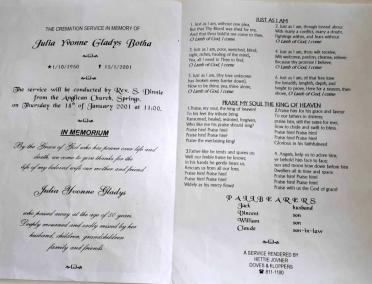 THE CREMATION SERVICE IN MEMORY OF
Julia Yvonne Gladys Botha
1/10/1950 13/1/2001
The service will be conducted by Rev. S. Dinnie
from the Anglican Church, Springs,
on Thursday the 18th of January 2001 at 11:00.
IN MEMORIUM
By the Grace of God who has power over life and
death, we come to give thanks for the
life of my beloved wife our mother and friend
Julia Yvonne Gladys
who passed away at the age of 50 years.
Deeply mourned and sadly missed by her
husband, children, grandchildren
family and friends.
JUST AS I AM
1. Just as I am, without one plea,
But that Thy Blood was shed for me,
And that thou bidd'st me come to thee,
O Lamb of God, I come
2. Just as I am, poor, wretched, blind,
sight, riches, healing of the mind,
Yea, all I need in Thee to find,
O Lamb of God, I come
3. Just as I am, (thy love unknown
has broken every barrier down),
Now to be thine, yea thine alone,
O Lamb of God, I come
4. Just as I am, though tossed about
With many a conflict, many a doubt,
Fightings within, and fears without
O Lamb of God, I come
5. Just as I am, thou wilt receive,
Wilt welcome, pardon, cleanse, relieve
Because thy promise I believe,
O Lamb of God, I come
6. Just as I am, of that free love
the breadth, length, depth, and
height to prove, Here for a season, then
above, O Lamb of God, I come
PRAISE MY SOUL THE KING OF HEAVEN
1. Praise, my soul, the king of heaven
To his feet thy tribute bring
Ransomed, healed, restored, forgiven,
Who like me his praise should sing?
Praise him! Praise him!
Praise him! Praise him!
Praise the everlasting king!
3. Father-like he tends and spares us
Well our feeble frame he knows;
in his hands he gently bears us,
Rescues us from all our foes
Praise him! Praise him!
Praise him! Praise him!
Widely as his mercy flows!
2. Praise him for his grace and favour
To our fathers in distress
praise him, still the same for ever,
slow to chide and swift to bless.
Praise him! Praise him!
Praise him! Praise him!
Glorious in his faithfulness!
4. Angels, help us to adore him,
ye behold him face to face;
sun and moon bow down before him
Dwellers all in time and space
Praise him! Praise him!
Praise him! Praise him!
Praise with us the God of grace!
PALLBEARERS
Jack husband
Vincent son
William son
Claude son-in-law
A SERVICE RENDERED BY
HETTIE JOVNER
DOVES & KLOPPERS
811-1180